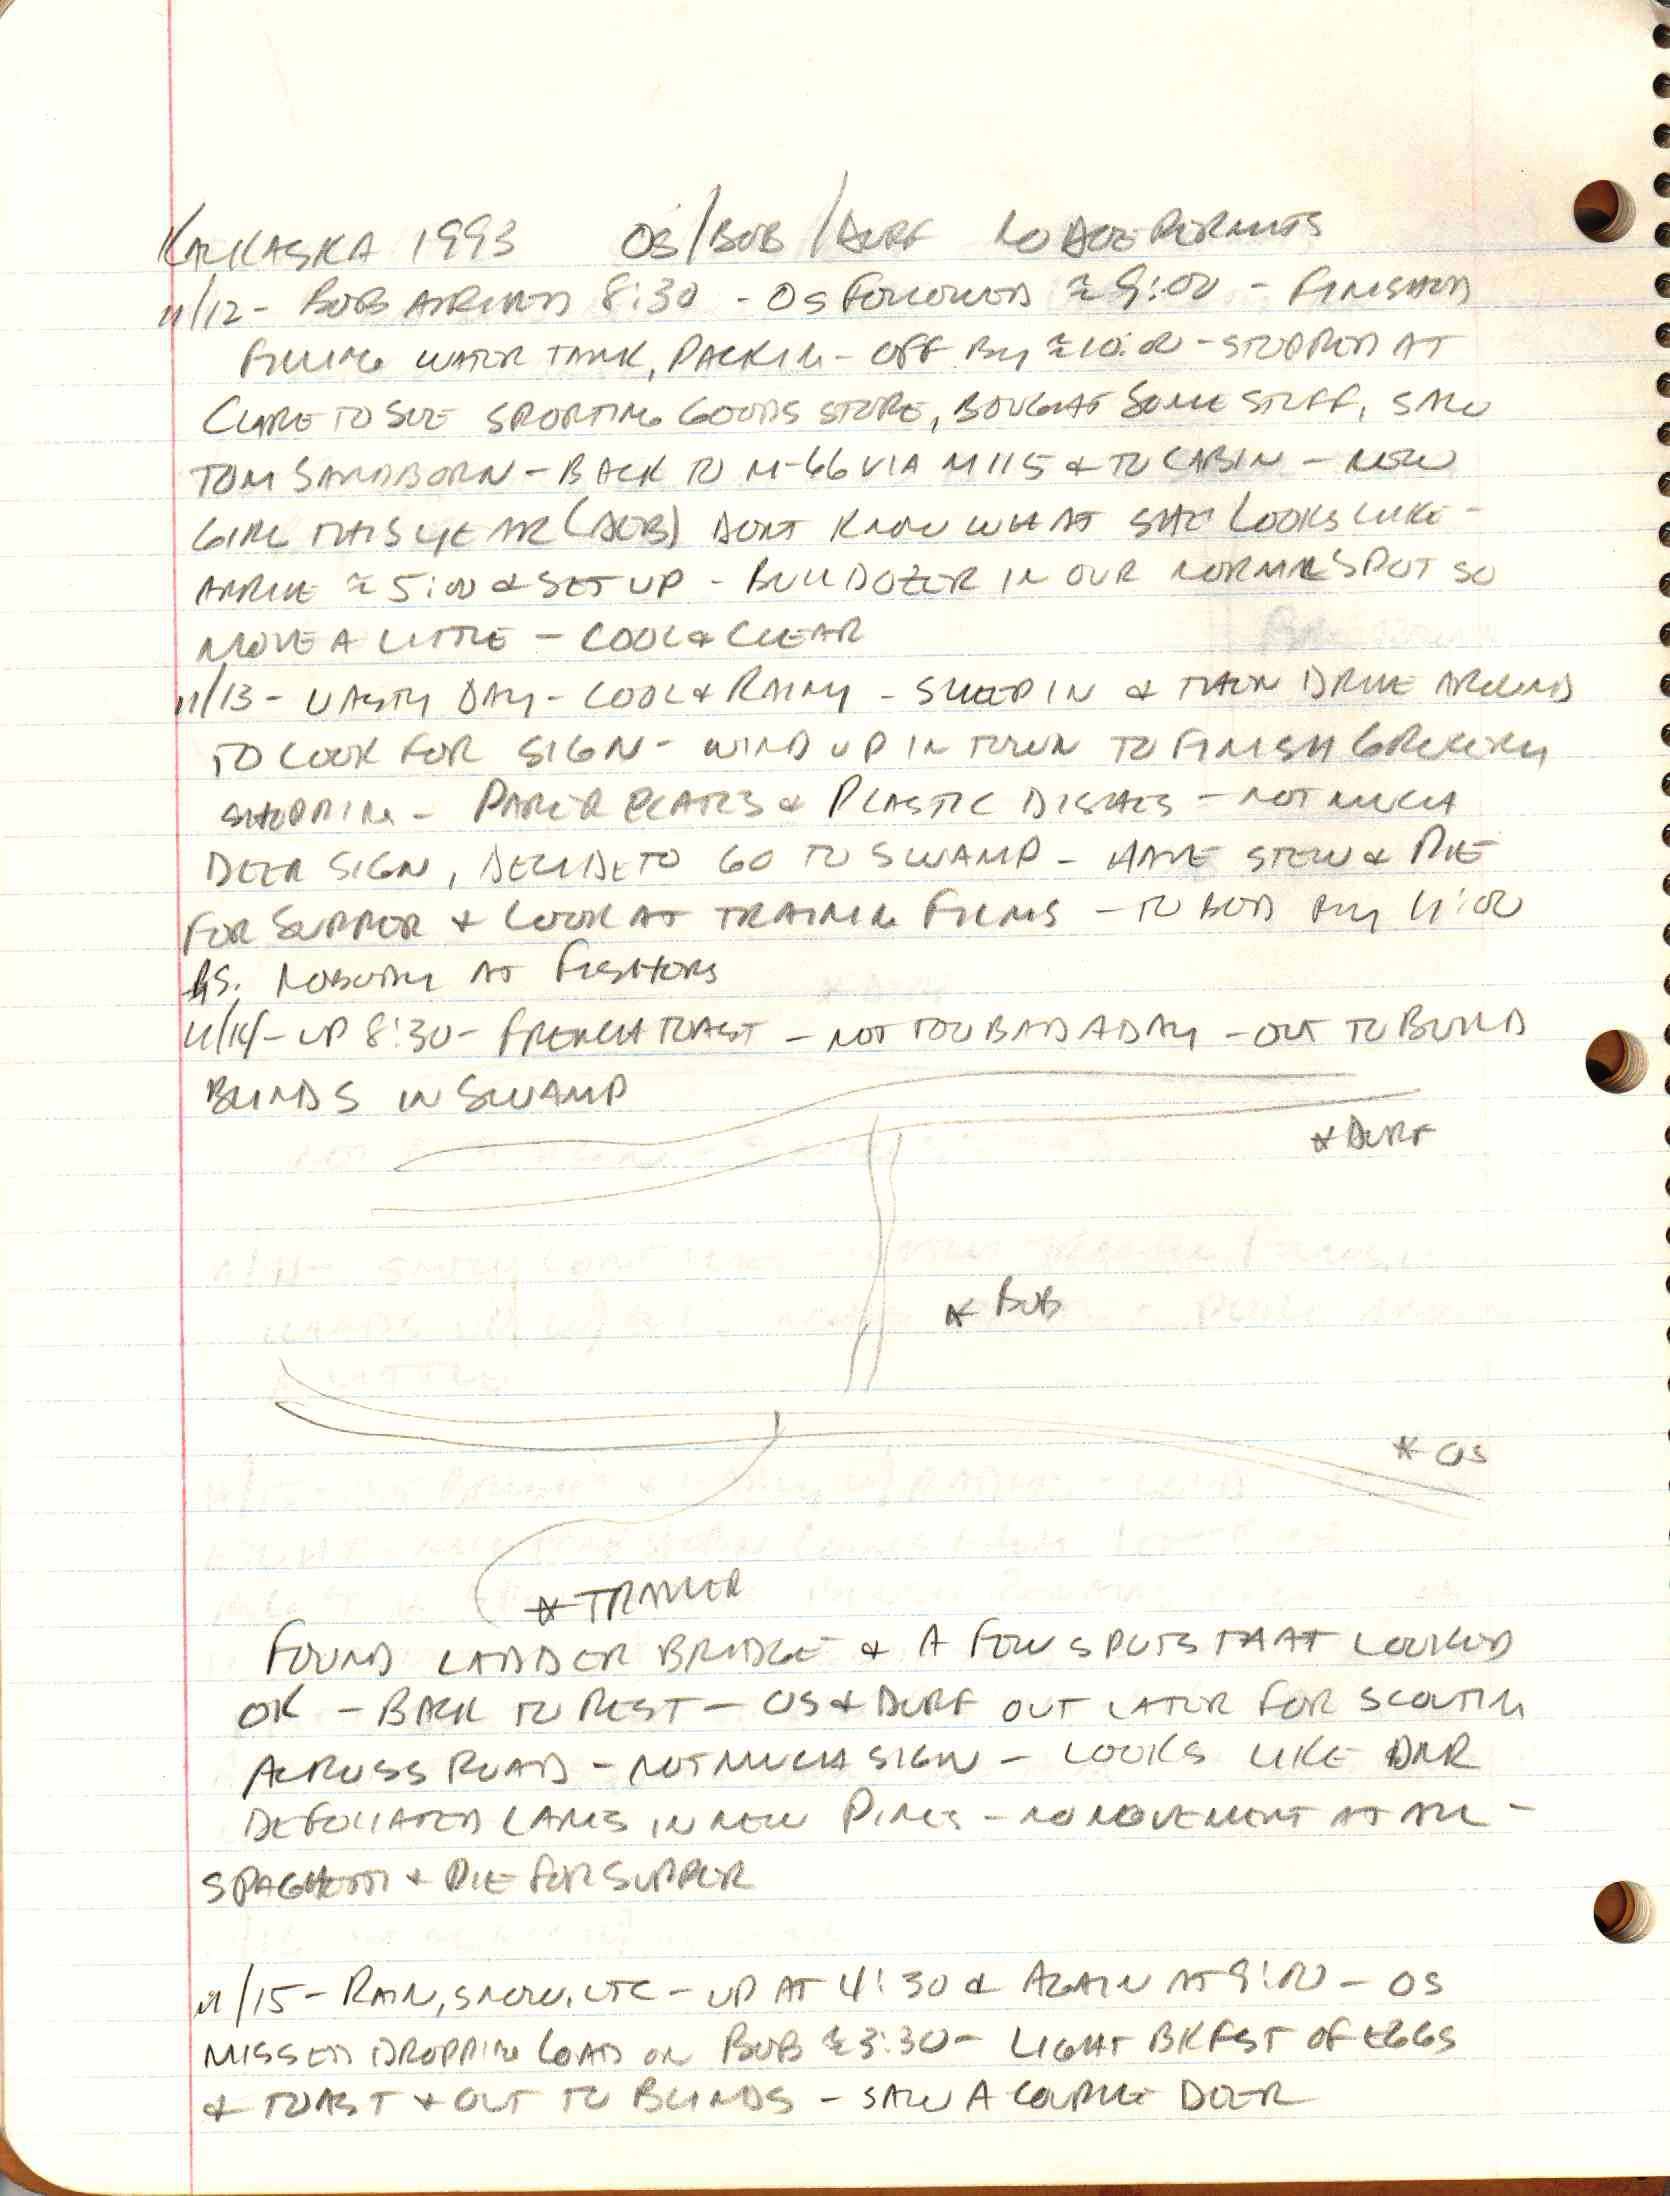 KALKASKA 1993 OS/BOB/DURF NO DOE PERMITS
11/12 - BOB ARRIVED 8:30 - OS FOLLOWED ≈ 9:00 - FINISHED
FILLING WATER TANK, PACKING - OFF BY ≈ 10:00 - STOPPED AT
CLARE TO SEE SPORTING GOODS STORE, BOUGHT SOME STUFF, SAW
TOM SANDBORN - BACK TO M-66 VIA M115 & TO CABIN - NEW
GIRL THIS YEAR (DEB) DONT KNOW WHAT SHE LOOKS LIKE -
ARRIVE ≈ 5:00 & SET UP - BULLDOZER IN OUR NORMAL SPOT SO
MOVE A LITTLE - COOL & CLEAR
11/13 - NASTY DAY - COOL & RAINY - SLEEP IN & THEN DRIVE AROUND
TO LOOK FOR SIGN - WIND UP IN TOWN TO FINISH GROCERY
SHOPPING - PAPER PLATES & PLASTIC DISHES - NOT MUCH
DEER SIGN, DECIDE TO GO TO SWAMP - HAVE STEW & PIE
FOR SUPPER & LOOK AT TRAINING FILMS - TO BED BY 11:00
PS. NOBODY AT FISHHORS
11/14 - UP 8:30 - FRENCH TOAST - NOT TOO BAD A DAY - OUT TO BUILD
BLINDS IN SWAMP
* DURF
* BOB
* OS
* TRAILER
FOUND LADDER BRIDGE & A FEW SPOTS THAT LOOKED
OK - BACK TO REST - OS & DURF OUT LATER FOR SCOUTING
ACROSS ROAD - NOT MUCH SIGN - LOOKS LIKE DNR
DEFOLIATED LANES IN NEW PINES - NO MOVEMENT AT ALL -
SPAGHETTI & PIE FOR SUPPER
11/15 - RAIN, SNOW, ETC - UP AT 4:30 & AGAIN AT 9:00 - OS
MISSED DROPPING LOAD ON BOB ≈ 3:30 - LIGHT BKFST OF EGGS
& TOAST & OUT TO BLINDS - SAW A COUPLE DEER